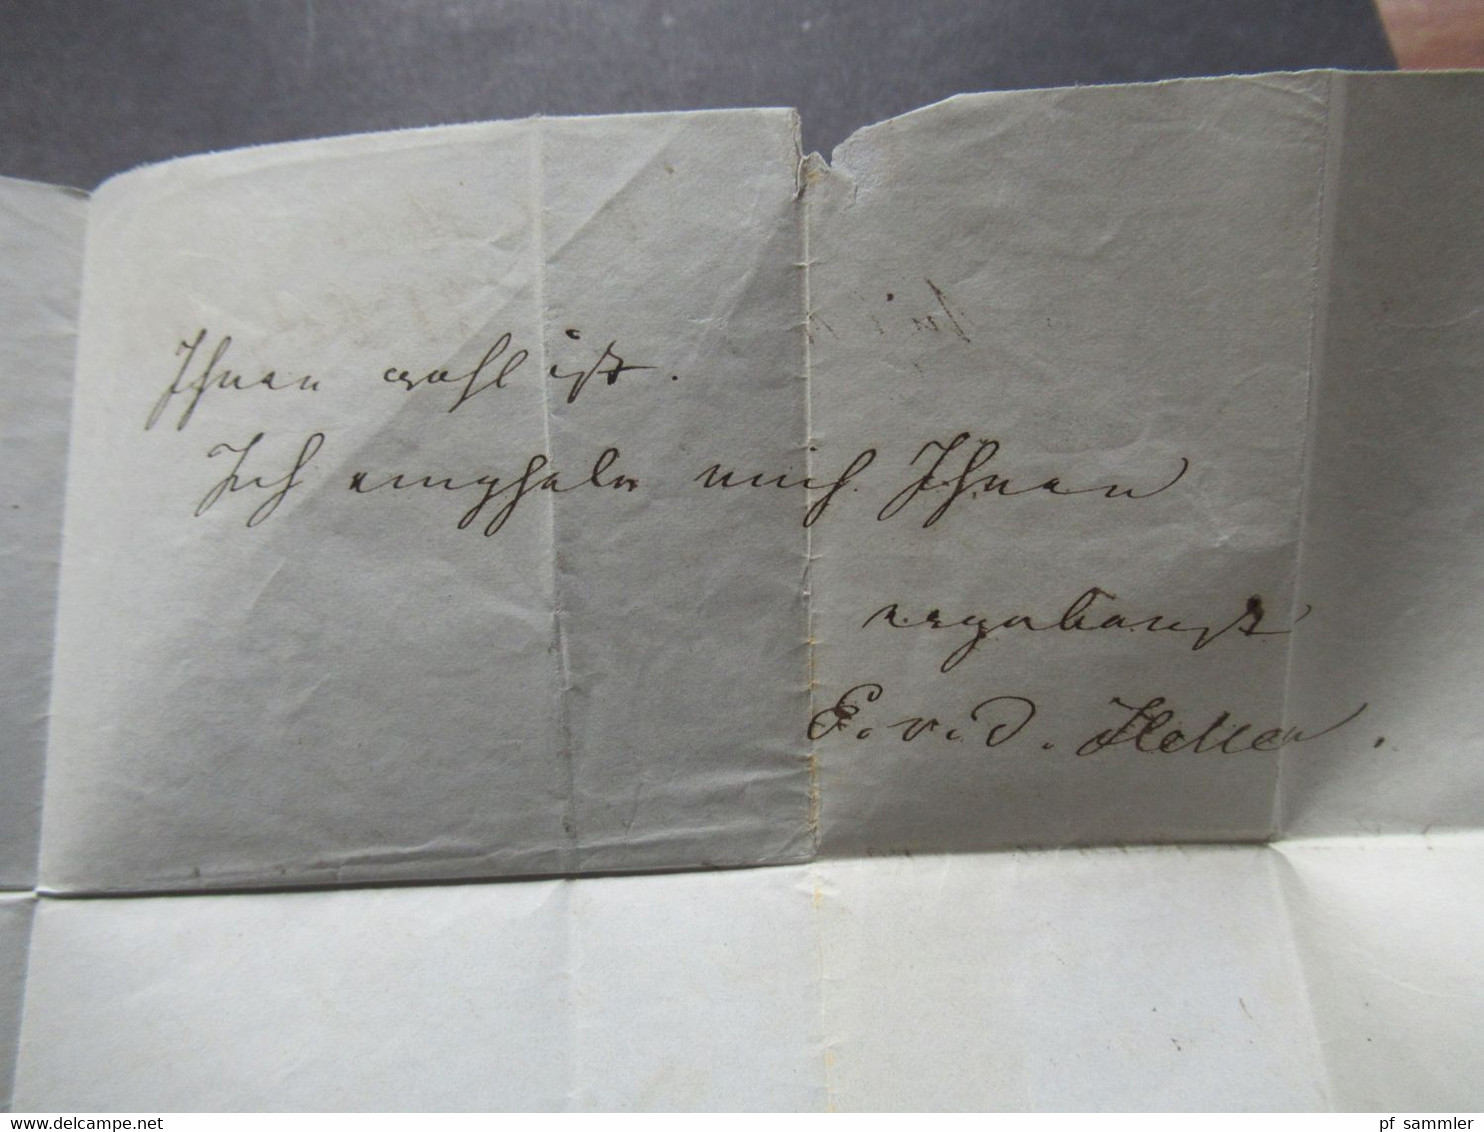 Ihnen wohl ist.
Ich empfehle mich Ihnen
ergebenst
E. v. d.
www.delcampe.net
pf sammler